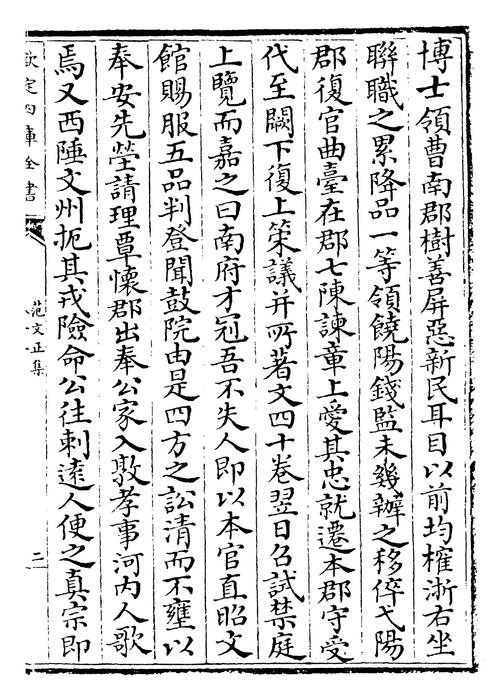 博士領曹南郡樹善屏惡新民耳目以前均榷浙右坐
聯職之累降品一等領饒陽錢監未幾辦之移倅弋陽
郡復官曲臺在郡七陳諫章上愛其忠就遷本郡守受
代至闕下復上策議并所著文四十卷翌日召試禁庭
上覽而嘉之曰南府才冠吾不失人即以本官直昭文
館賜服五品判登聞鼓院由是四方之訟清而不壅以
奉安先塋請理覃懷郡出奉公家入敦孝事河内人歌
焉又西陲文州扼其戎險命公往刺遠人便之真宗即
欽定四庫全書
范文正集
二